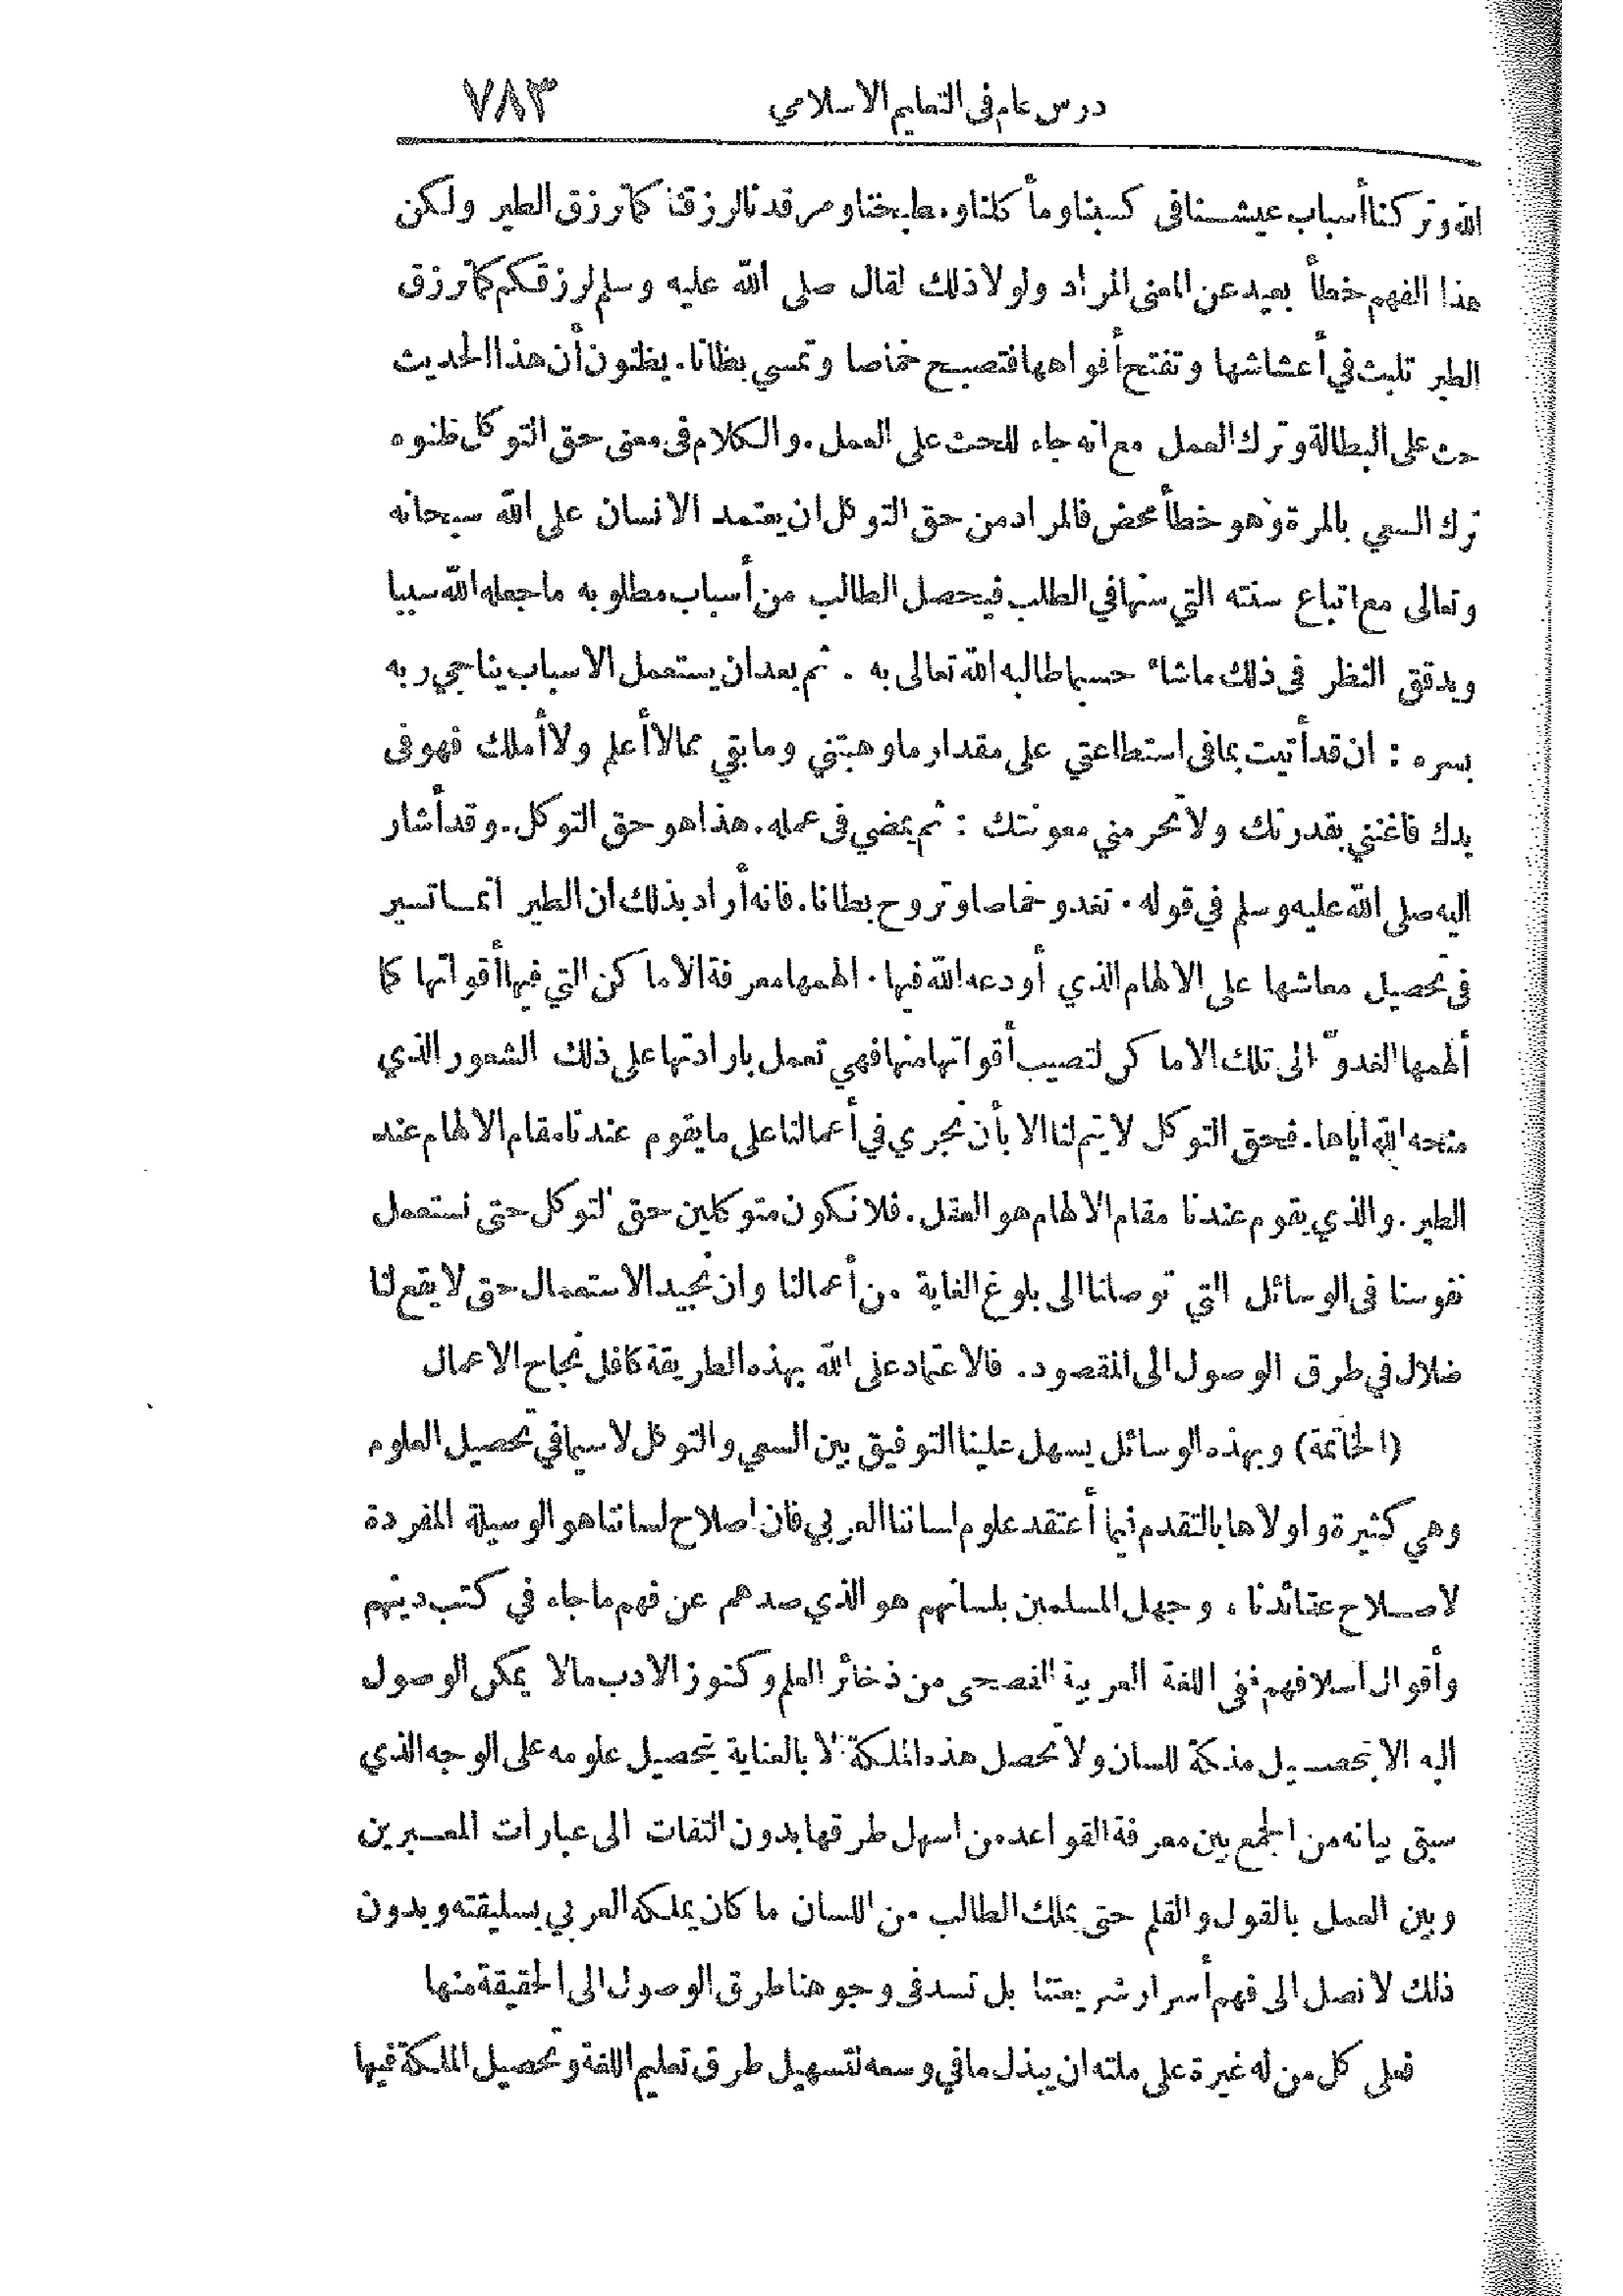 درس عام في التعليم الاسلامي ٧٨٣
الله وتركنا أسباب عيشنا في كسبنا ومأكلنا ومطبخنا ومرقدنا لرزقنا كما ترزق الطير ولكن
هذا الفهم خطأ بعيد عن المعنى المراد ولولا ذلك لقال صلى الله عليه وسلم لرزقكم كما ترزق
الطير تلبث في أعشاشها وتفتح أفواهها فتصبح خماصا وتمسي بطانا. يظنون أن هذا الحديث
حث على البطالة وترك العمل مع انه جاء للحث على العمل. والكلام في معنى حق التوكل ظنوه
ترك السعي بالمرة وهو خطأ محض فالمراد من حق التوكل ان يعتمد الانسان على الله سبحانه
وتعالى مع اتباع سنته التي سنها في الطلب فيحصل الطالب من أسباب مطلوبه ما جعله الله سببا
ويدقق النظر في ذلك ما شاء حسبما طالبه الله تعالى به . ثم بعد ان يستعمل الاسباب يناجي ربه
بسره : ان قد أتيت بما في استطاعتي على مقدار ما وهبتني وما بقي مما لا أعلم ولا أملك فهو في
يدك فاغنني بقدرتك ولا تحرمني معونتك : ثم يمضي في عمله. هذا هو حق التوكل. وقد أشار
اليه صلى الله عليه وسلم في قوله . تغدو خماصا وتروح بطانا. فانه أراد بذلك ان الطير انما تسير
في تحصيل معاشها على الالهام الذي أودعه الله فيها . الهمها معرفة الاماكن التي فيها أقواتها كما
ألهمها الغدوّ الى تلك الاماكن لتصيب أقواتها منها فهي تعمل بارادتها على ذلك الشعور الذي
منحه الله اياها. فحق التوكل لا يتم لنا الا بأن نجري في أعمالنا على ما يقوم عندنا مقام الالهام عند
الطير. والذي يقوم عندنا مقام الالهام هو العقل. فلا نكون متوكلين حق التوكل حتى نستعمل
نفوسنا في الوسائل التي توصلنا الى بلوغ الغاية من أعمالنا وان نجيد الاستعمال حتى لا يقع لنا
ضلال في طرق الوصول الى المقصود. فالاعتماد على الله بهذه الطريقة كافل نجاح الاعمال
(الخاتمة) وبهذه الوسائل يسهل علينا التوفيق بين السعي والتوكل لا سيما في تحصيل العلوم
وهي كثيرة واولاها بالتقدم فيما أعتقد علوم لساننا العربي فان اصلاح لساننا هو الوسيلة المفردة
لاصلاح عقائدنا ، وجهل المسلمين بلسانهم هو الذي صدهم عن فهم ما جاء في كتب دينهم
وأقوال اسلافهم ففي اللغة العربية الفصحى من ذخائر العلم وكنوز الادب مالا يمكن الوصول
اليه الا بتحصيل ملكة اللسان ولا تحصل هذه الملكة الا بالعناية بتحصيل علومه على الوجه الذي
سبق بيانه من الجمع بين معرفة القواعد من اسهل طرقها بدون التفات الى عبارات المعبرين
وبين العمل بالقول والقلم حتى يملك الطالب من اللسان ما كان يملكه العربي بسليقته وبدون
ذلك لا نصل الى فهم أسرار شريعتنا بل تسد في وجوهنا طرق الوصول الى الحقيقة منها
فعلى كل من له غيرة على ملته ان يبذل ما في وسعه لتسهيل طرق تعليم اللغة وتحصيل الملكة فيها